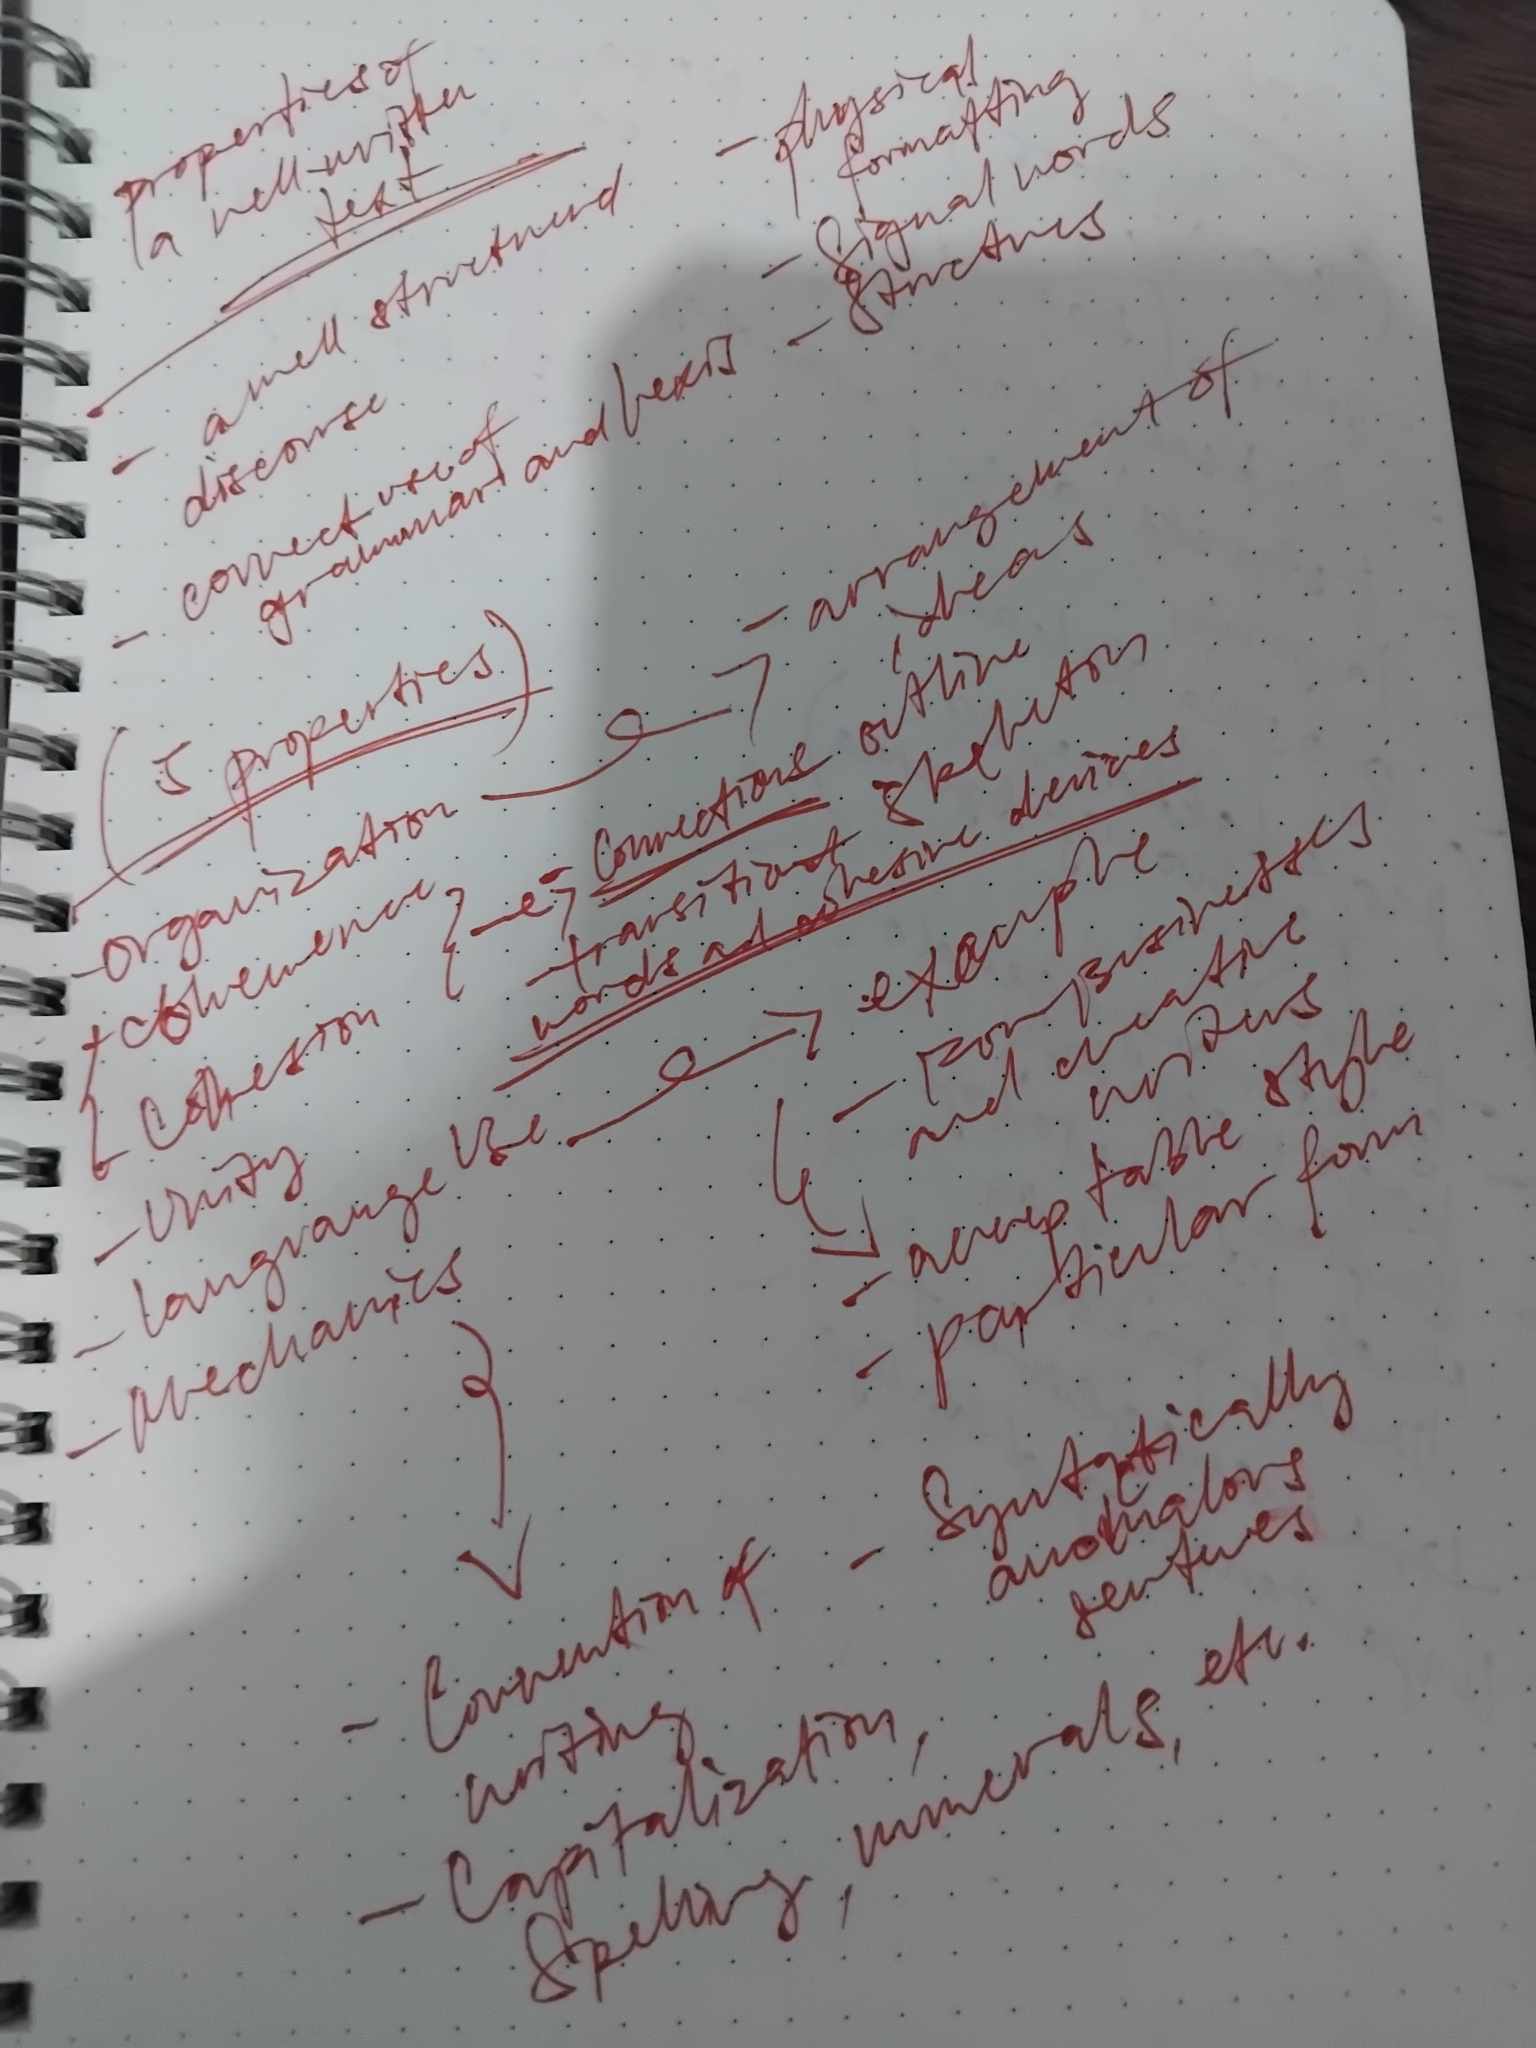 properties of
a well-written
text
- a well structured
discourse
- correct use of
grammar and lexis
- physical
formatting
- Signal words
- structures
(5 properties)
- organization
- arrangement of
ideas
outline
skeleton
coherence
Cohesion
- Connections
- transitional
words and cohesive devices
- Unity
- language Use
example
- For Businesses
and creative
writers
- acceptable style
- particular form
- Mechanics
- Convention of
writing
- Capitalization,
Spelling, numerals, etc.
- Syntatically
anomalous